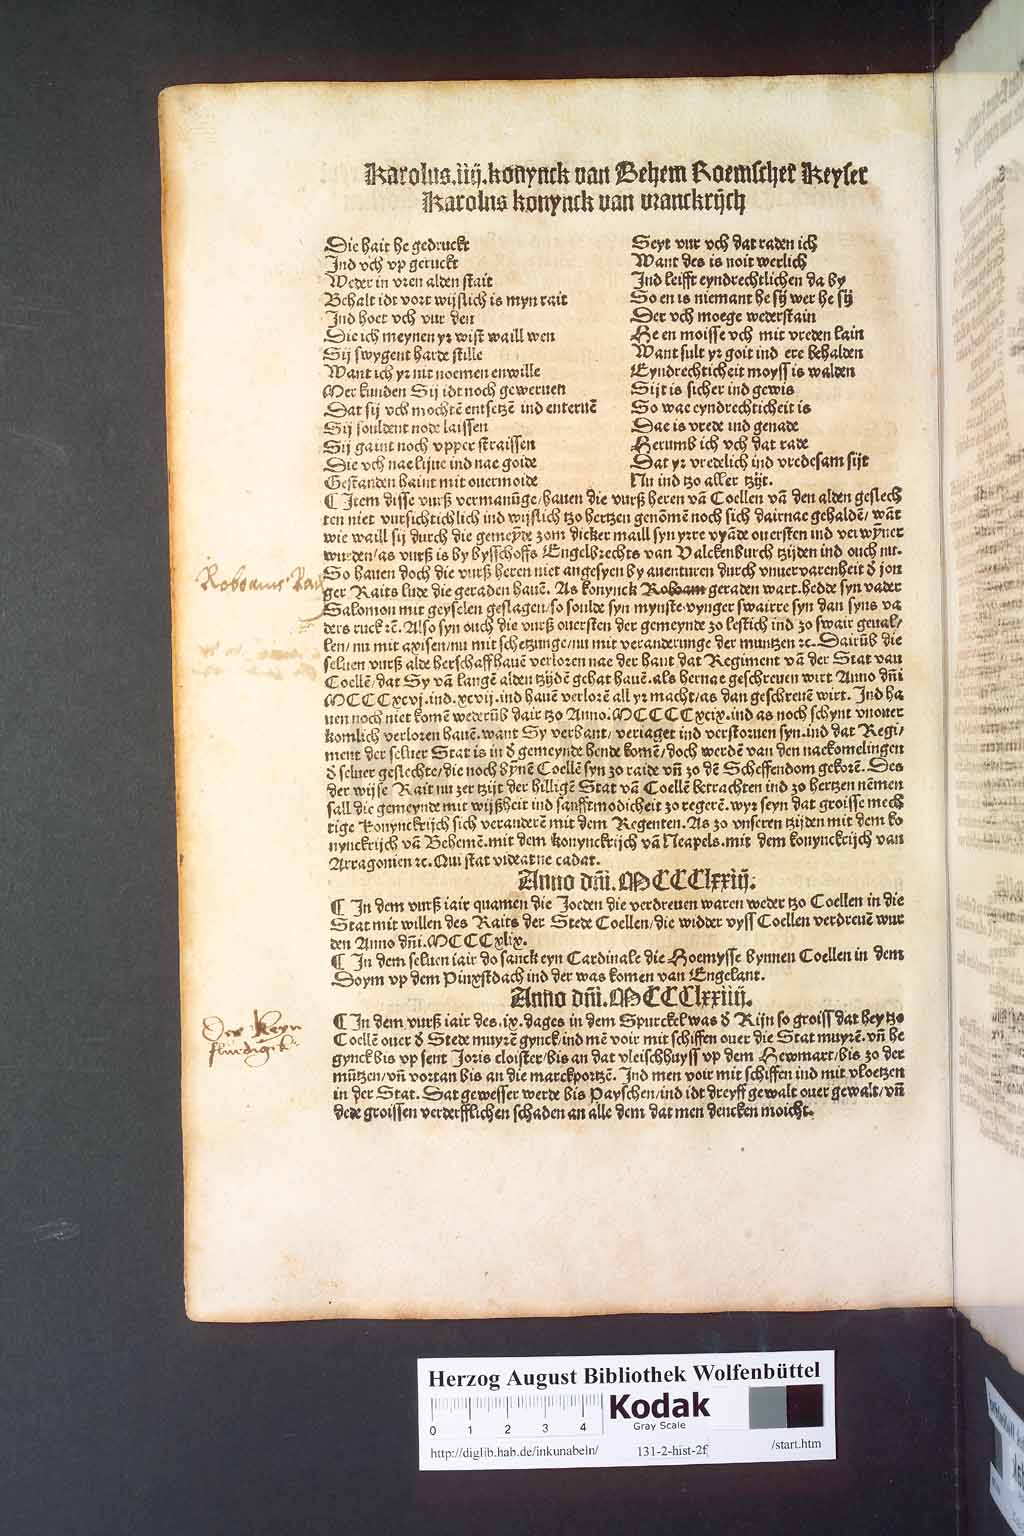 Karolus.iiij.konynck van Behem Roemscher Keyser
Karolus konynck van vranckrijch
Die hait he gedruckt
Jnd vch vp geruckt
Weder in vren alden stait
Behalt idt vort wijslich is myn rait
Jnd hoet vch vur den
Die ich meynen yr wist waill wen
Sij swygent harde stille
Want ich yr nit noemen enwille
Mer kunden Sij idt noch geweruen
Dat sij vch mochtē entsetzē ind enteruē
Sij souldent node laissen
Sij gaint noch vpper straissen
Die vch nae lijue ind nae goide
Gestanden haint mit ouermoide
Seyt vur vch dat raden ich
Want des is noit werlich
Jnd leifft eyndrechtlichen da by
So en is niemant he sij wer he sij
Der vch moege wederstain
He en moisse vch mit vreden lain
Want sult yr goit ind ere behalden
Eyndrechticheit moyss is walden
Sijt is sicher ind gewis
So wae eyndrechticheit is
Dae is vrede ind genade
Herumb ich vch dat rade
Dat yr vredelich ind vredesam sijt
Nu ind tzo aller tzijt.
¶ Jtem disse vurß vermanūge/hauen die vurß heren vā Coellen vā den alden geslech
ten niet vursichtichlich ind wijslich tzo hertzen genōmē noch sich dairnae gehaldē/wāt
wie waill sij durch die gemeyde zom dicker maill syn yrre vyāde ouersten ind verwȳner
wurden/as vurß is by bysschoffs Engelbrechts van Valckenburch tzijden ind ouch nu.
So hauen doch die vurß heren niet angesyen by auenturen durch vnuervarenheit d jon
ger Raits lude die geraden hauē. As konynck Roboam geraden wart.hedde syn vader
Salomon mit geyselen geslagen/so soulde syn mynste vynger swairre syn dan syns va
ders ruck ꝛc. Also syn ouch die vurß ouersten der gemeynde zo lestich ind zo swair geual/
len/nu mit axisen/nu mit schetzunge/nu mit veranderunge der muntzen ꝛc. Dairūb die
seluen vurß alde herschaff hauē verloren nae der hant dat Regiment vā der Stat van
Coellē/dat Sy vā langē alden tzijdē gehat hauē.als hernae geschreuen wirt Anno dn̄i
MCCCxcvj.ind.xcvij.ind hauē verlorē all yr macht/as dan geschreuē wirt. Jnd ha
uen noch niet komē wederūb dair tzo Anno.MCCCCxcix.ind as noch schynt vnouer
komlich verloren hauē.want Sy verbant/veriaget ind verstoruen syn.ind dat Regi/
ment der seluer Stat is in d gemeynde hende komē/doch werdē van den nackomelingen
d seluer geslechte/die noch bȳnē Coellē syn zo raide vn̄ zo dē Scheffendom gekorē. Des
der wijse Rait nu zer tzijt der hilligē Stat vā Coellē betrachten ind zo hertzen nēmen
sall die gemeynde mit wijßheit ind sanfftmodicheit zo regerē.wyr seyn dat groisse mech
tige konynckrijch sich veranderē mit dem Regenten. As zo vnseren tzijden mit dem ko
nynckrijch vā Behemē.mit dem konynckrijch vā Neapels.mit dem konynckrijch van
Arragonien ꝛc. Qui stat videat ne cadat.
Anno dn̄i.MCCClxxiij.
¶ Jn dem vurß iair quamen die Joeden die verdreuen waren weder tzo Coellen in die
Stat mit willen des Raits der Stede Coellen/die widder vyss Coellen verdreuē wur
den Anno dn̄i.MCCCxlix.
¶ Jn dem seluen iair do sanck eyn Cardinale die Hoemysse bynnen Coellen in dem
Doym vp dem Pinxstdach ind der was komen van Engelant.
Anno dn̄i.MCCClxxiiij.
¶ Jn dem vurß iair des.ix.dages in dem Spurckel was d Rijn so groiss dat hey tzo
Coellē ouer d Stede muyrē gynck/ind mē voir mit schiffen ouer die Stat muyrē.vn̄ he
gynck bis vp sent Joris cloister/bis an dat vleischhuyss vp dem Hewmart/bis zo der
mūtzen/vn̄ vortan bis an die marckportzē. Jnd men voir mit schiffen ind mit vloetzen
in der Stat. Dat gewesser werde bis Payschen/ind idt dreyff gewalt ouer gewalt/vn̄
dede groissen verderfflichen schaden an alle dem dat men dencken moicht.
Herzog August Bibliothek Wolfenbüttel
0 1 2 3 4
Kodak
Gray Scale
http://diglib.hab.de/inkunabeln/ 131-2-hist-2f /start.htm